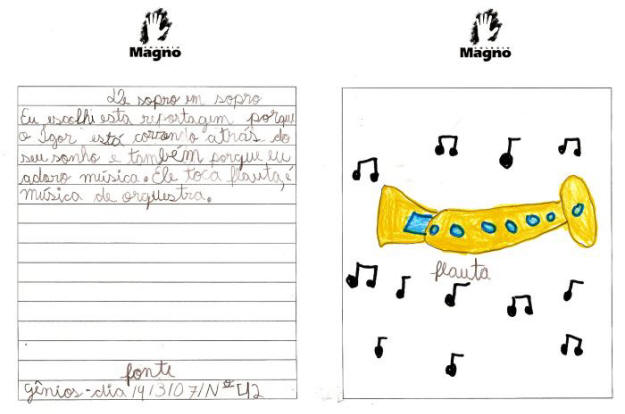 COLÉGIO
Magno
De sopro em sopro
Eu escolhi esta reportagem porque
o Igor está correndo atrás do
seu sonho e também porque eu
adoro música. Ele toca flauta, é
música de orquestra.
fonte
Gênios - dia 14/3/07/Nº 542
COLÉGIO
Magno
flauta